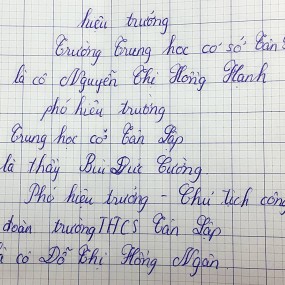 hiệu trưởng
Trường Trung học cơ sở Tân
là cô Nguyễn Thi Hồng Hạnh
phó hiệu trưởng
Trung học cơ sở Tân Lập
là thầy Bùi Đức Cường.
Phó hiệu trưởng - Chủ tịch công
đoàn trường THCS Tân Lập
là cô Đỗ Thị Hồng Ngân.